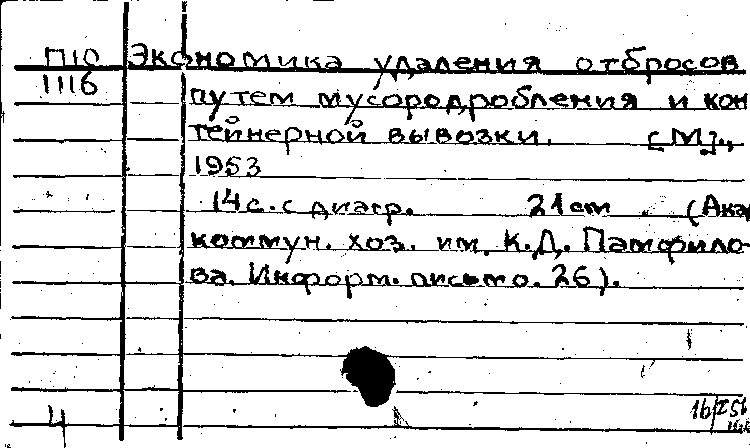 П10 Экономика удаления отбросов
1116 путем мусородробления и кон
тейнерной вывозки. [М].,
1953
14с. с диагр. 21cm (Ака
коммун. хоз. им. К.Д. Памфило-
ва. Информ. письмо. 26).
4